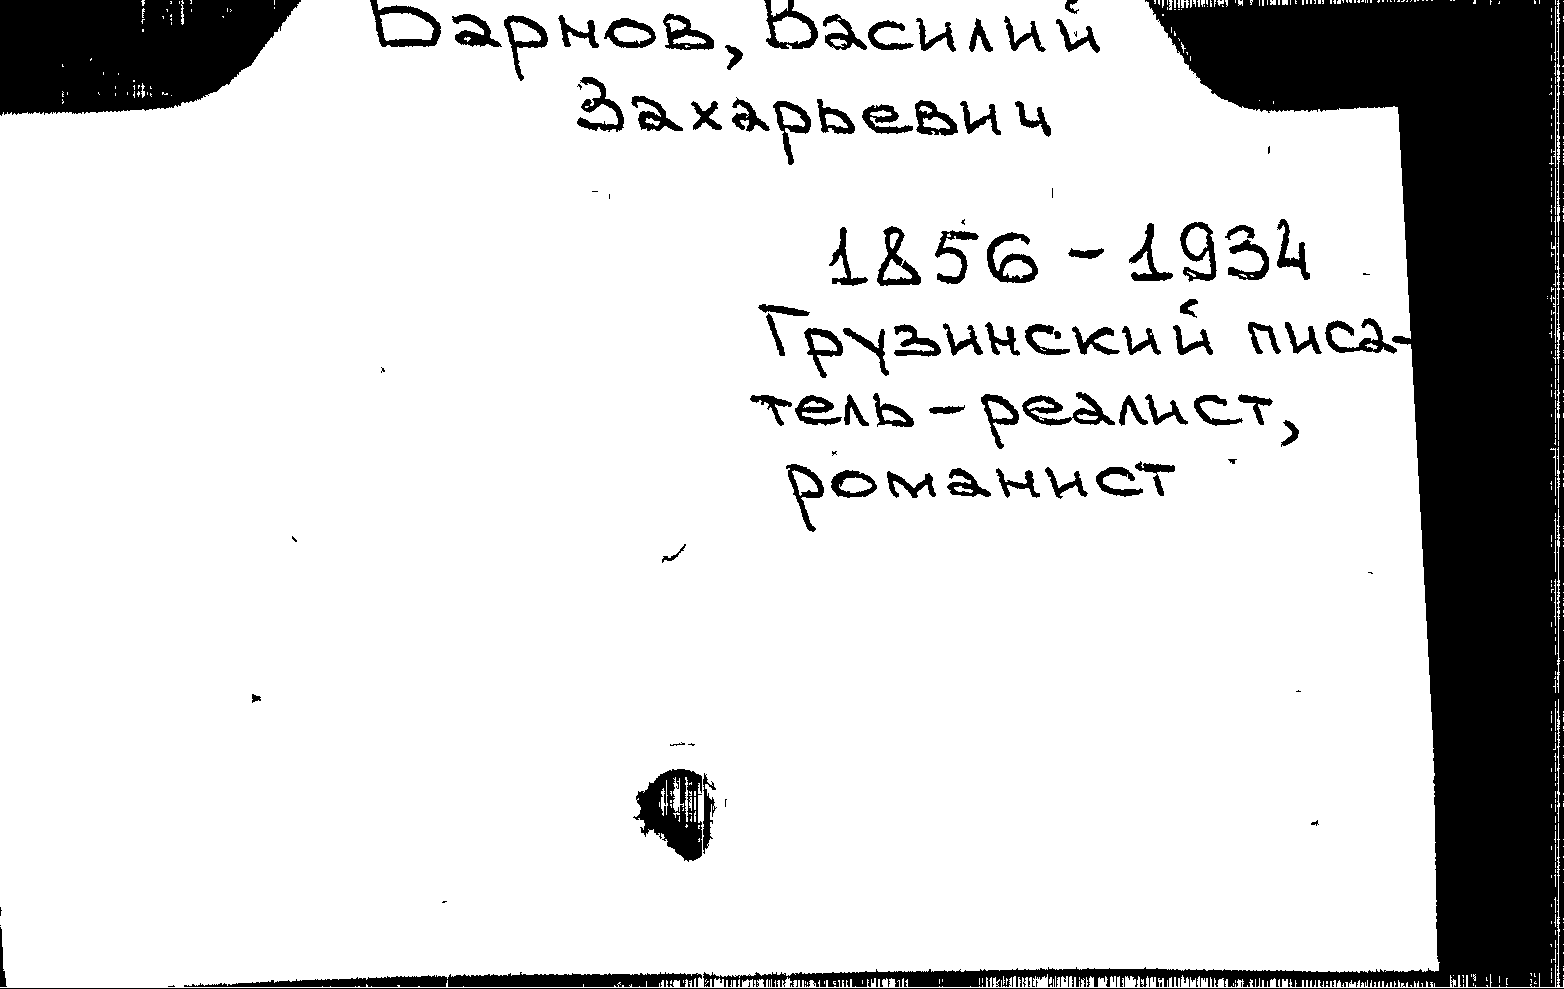 Барнов, Василий
Захарьевич
1856 - 1934
Грузинский писа-
тель - реалист,
романист